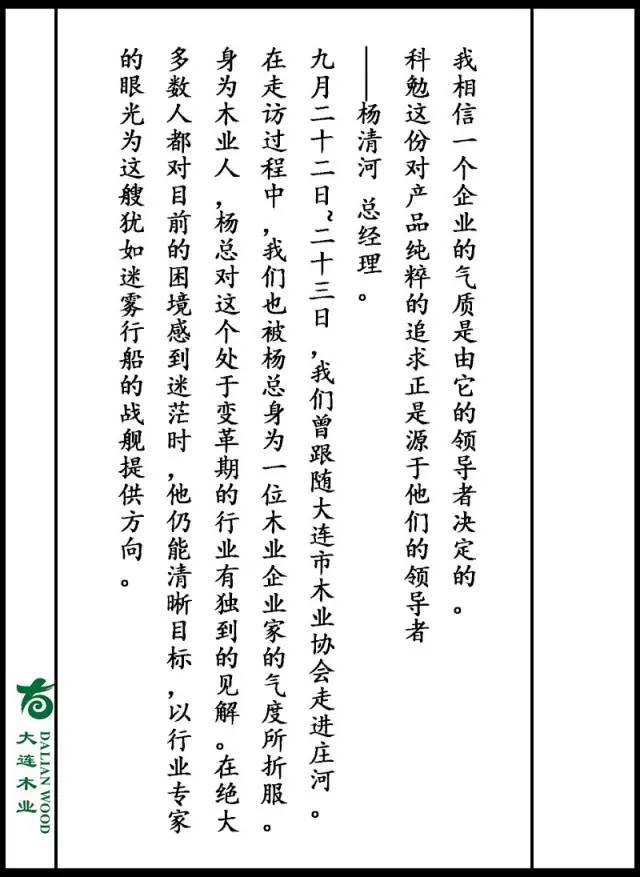 我相信一个企业的气质是由它的领导者决定的。
科勉这份对产品纯粹的追求正是源于他们的领导者
——杨清河 总经理。
九月二十二日~二十三日,我们曾跟随大连市木业协会走进庄河。
在走访过程中,我们也被杨总身为一位木业企业家的气度所折服。
身为木业人,杨总对这个处于变革期的行业有独到的见解。在绝大
多数人都对目前的困境感到迷茫时,他仍能清晰目标,以行业专家
的眼光为这艘犹如迷雾行船的战舰提供方向。
DALIAN WOOD
大连木业